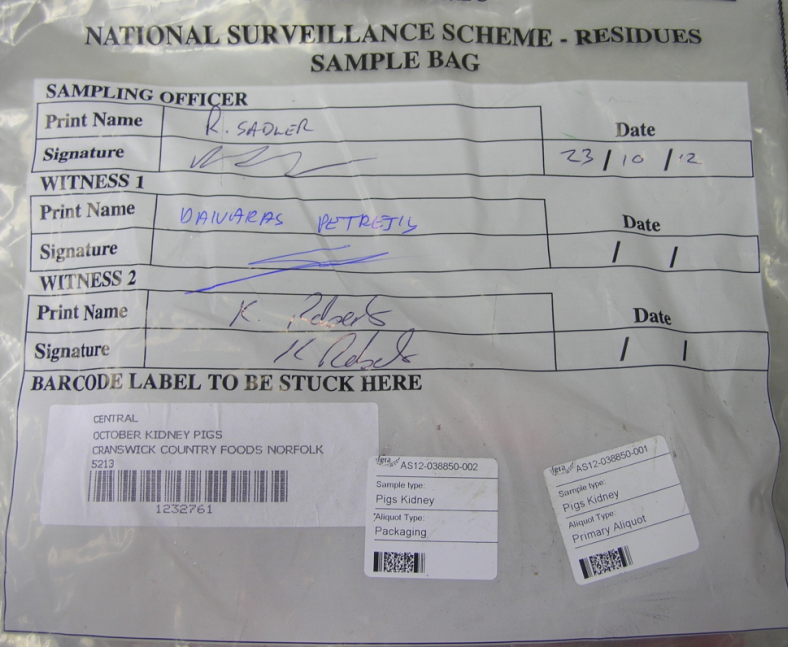 NATIONAL SURVEILLANCE SCHEME - RESIDUES
SAMPLE BAG
SAMPLING OFFICER
Print Name R. SADLER Date
Signature 23/10/12
WITNESS 1
Print Name DAIVARAS Date
Signature / /
WITNESS 2
Print Name K. Roberts Date
Signature K Roberts / /
BARCODE LABEL TO BE STUCK HERE
CENTRAL
OCTOBER KIDNEY PIGS
CRANSWICK COUNTRY FOODS NORFOLK
5213
1232761
fera AS12-038850-002
Sample type:
Pigs Kidney
Aliquot Type:
Packaging
fera AS12-038850-001
Sample type:
Pigs Kidney
Aliquot Type:
Primary Aliquot